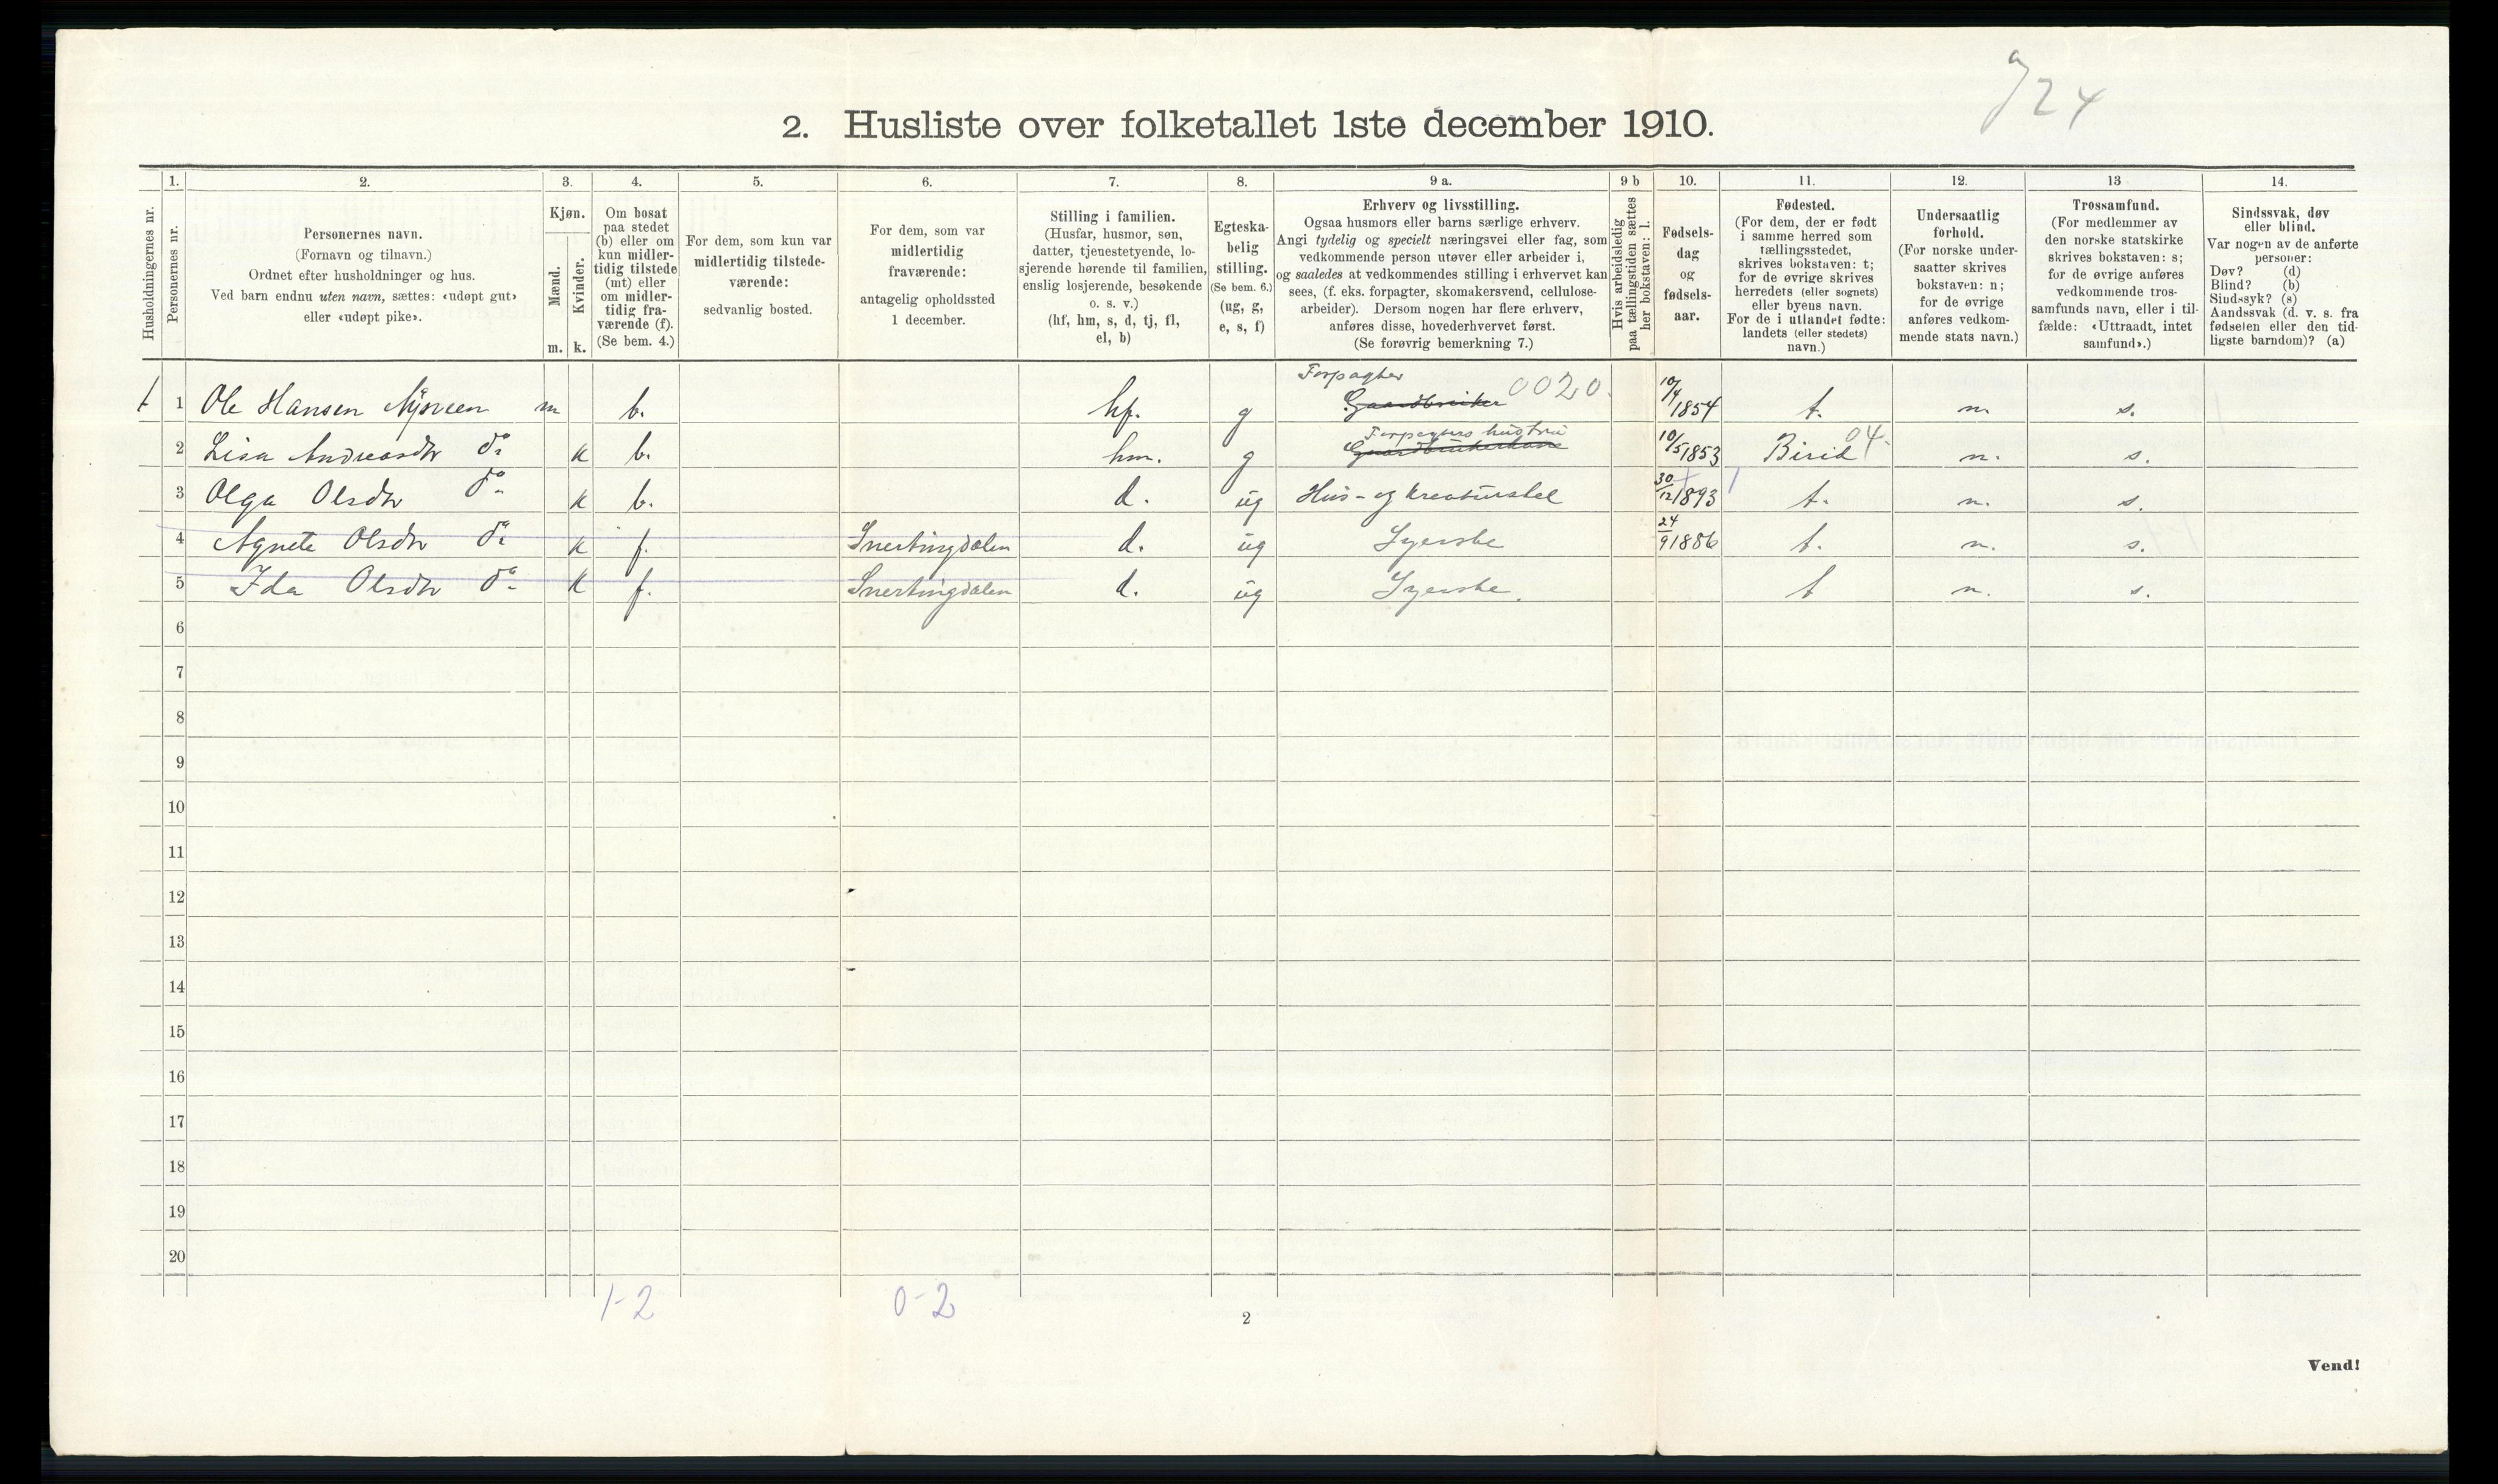 2. Husliste over folketallet 1ste december 1910.
24
1. 2. 3. 4. 5. 6. 7. 8. 9 a. 9 b 10. 11. 12. 13 14.
Husholdningernes nr.
Personernes nr.
Personernes navn.
(Fornavn og tilnavn.)
Ordnet efter husholdninger og hus.
Ved barn endnu uten navn, sættes: «udøpt gut»
eller «udøpt pike».
Kjøn.
Mænd.
Kvinder.
m. k.
Om bosat
paa stedet
(b) eller om
kun midler-
tidig tilstede
(mt) eller
om midler-
tidig fra-
værende (f).
(Se bem. 4.)
For dem, som kun var
midlertidig tilstede-
værende:
sedvanlig bosted.
For dem, som var
midlertidig
fraværende:
antagelig opholdssted
1 december.
Stilling i familien.
(Husfar, husmor, søn,
datter, tjenestetyende, lo-
sjerende hørende til familien,
enslig losjerende, besøkende
o. s. v.)
(hf, hm, s, d, tj, fl,
el, b)
Egteska-
belig
stilling.
(Se bem. 6.)
(ug, g,
e, s, f)
Erhverv og livsstilling.
Ogsaa husmors eller barns særlige erhverv.
Angi tydelig og specielt næringsvei eller fag, som
vedkommende person utøver eller arbeider i,
og saaledes at vedkommendes stilling i erhvervet kan
sees, (f. eks. forpagter, skomakersvend, cellulose-
arbeider). Dersom nogen har flere erhverv,
anføres disse, hovederhvervet først.
(Se forøvrig bemerkning 7.)
Hvis arbeidsledig
paa tællingstiden sættes
her bokstaven: l.
Fødsels-
dag
og
fødsels-
aar.
Fødested.
(For dem, der er født
i samme herred som
tællingsstedet,
skrives bokstaven: t;
for de øvrige skrives
herredets (eller sognets)
eller byens navn.
For de i utlandet fødte:
landets (eller stedets)
navn.)
Undersaatlig
forhold.
(For norske under-
saatter skrives
bokstaven: n;
for de øvrige
anføres vedkom-
mende stats navn.)
Trossamfund.
(For medlemmer av
den norske statskirke
skrives bokstaven: s;
for de øvrige anføres
vedkommende tros-
samfunds navn, eller i til-
fælde: «Uttraadt, intet
samfund».)
Sindssvak, døv
eller blind.
Var nogen av de anførte
personer:
Døv? (d)
Blind? (b)
Sindssyk? (s)
Aandssvak (d. v. s. fra
fødselen eller den tid-
ligste barndom)? (a)
Forpagter
1 1 Ole Hansen m b. hf. g Gaardbruker 0020. 10/4 1854 t. n. s.
Forpagters hustru
2 Lisa Andreasdtr do k b. hm. g Gaardbrukerkone 10/5 1853 Birid 04. n. s.
3 Olga Olsdtr do k b. d. ug Hus- og kreaturstel 30/12 1893 t. n. s.
4 Agnete Olsdtr do k f. Snertingdalen d. ug Syerske 24/9 1886 t. n. s.
5 Ida Olsdtr do k f. Snertingdalen d. ug Syerske. t n. s.
6
7
8
9
10
11
12
13
14
15
16
17
18
19
20
1-2 0-2
2
Vend!